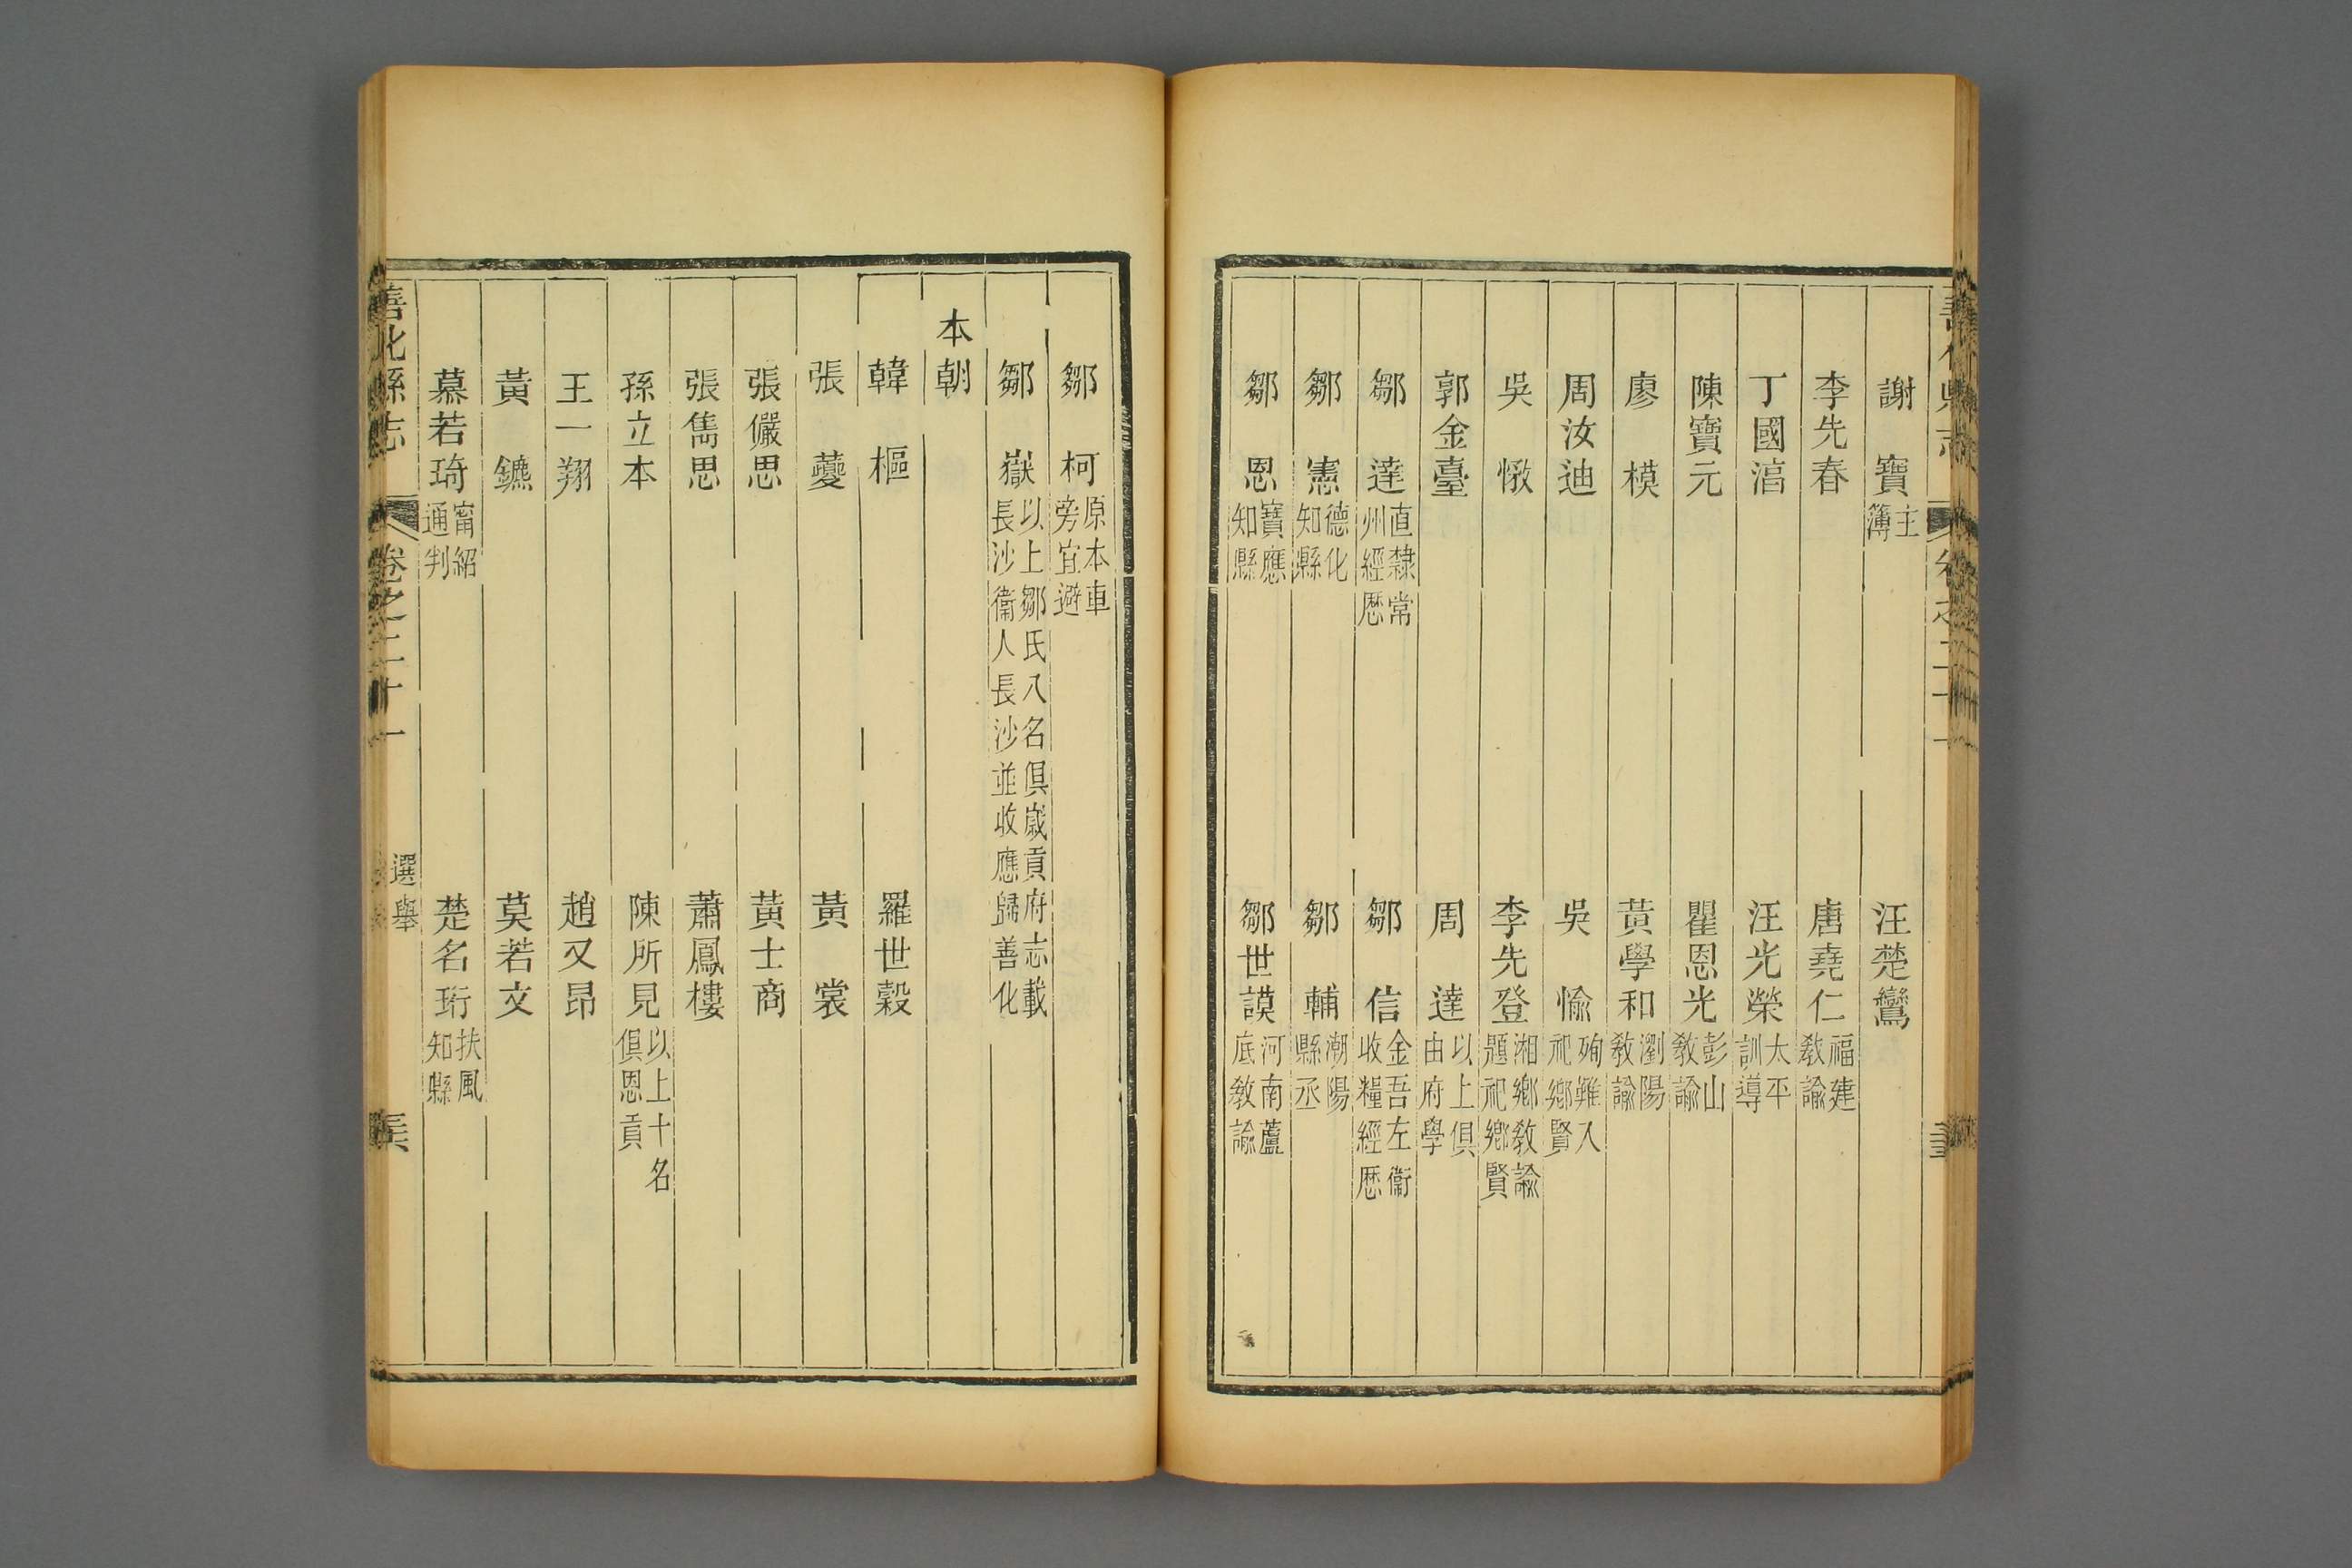 善化縣志 卷之二十一
謝寶 主簿 汪楚鸞
李先春 唐堯仁 福建教諭
丁國㴖 汪光榮 太平訓導
陳寶元 瞿恩光 彭山教諭
廖模 黃學和 瀏陽教諭
周汝迪 吳愉 殉難入祀鄉賢
吳憿 李先登 湘鄉教諭題祀鄉賢
郭金臺 周達 以上俱由府學
鄒達 直隸常州經歷 鄒信 金吾左衛收糧經歷
鄒憲 德化知縣 鄒輔 潮陽縣丞
鄒恩 寶應知縣 鄒世謨 河南蘆底教諭
鄒柯 原本車旁宜避
鄒嶽 以上鄒氏八名俱歲貢府志載長沙衛人長沙並收應歸善化
本朝
韓樞 羅世穀
張蘷 黃裳
張儼思 黃士商
張雋思 蕭鳳樓
孫立本 陳所見 以上十名俱恩貢
王一翔 趙又昂
黃鑣 莫若文
慕若琦 甯紹通判 楚名珩 扶風知縣
善化縣志 卷之二十一 選舉